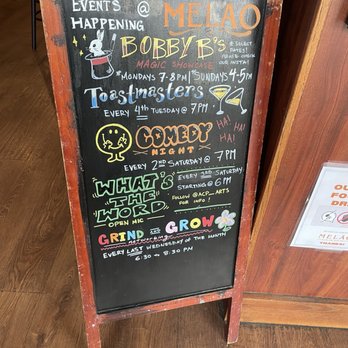 EVENTS @
HAPPENING MELAO
BOBBY B's
MAGIC SHOWCASE
* SELECT
DATES!
PLEASE CHECK
OUR INSTA!
*MONDAYS 7-8PM *SUNDAYS 4-5PM
Toastmasters
EVERY 4th TUESDAY @ 7PM
COMEDY
NIGHT
HA!
HA!
HA!
EVERY 2nd SATURDAY @ 7PM
"WHAT'S
THE
WORD"
OPEN MIC
EVERY 3RD SATURDAY
STARTING @ 6PM
FOLLOW @ACP_ARTS
FOR INFO!
GRIND AND GROW
networking
EVERY LAST WEDNESDAY OF THE MONTH
6:30 - 8:30 PM
OU
FO
MELAO